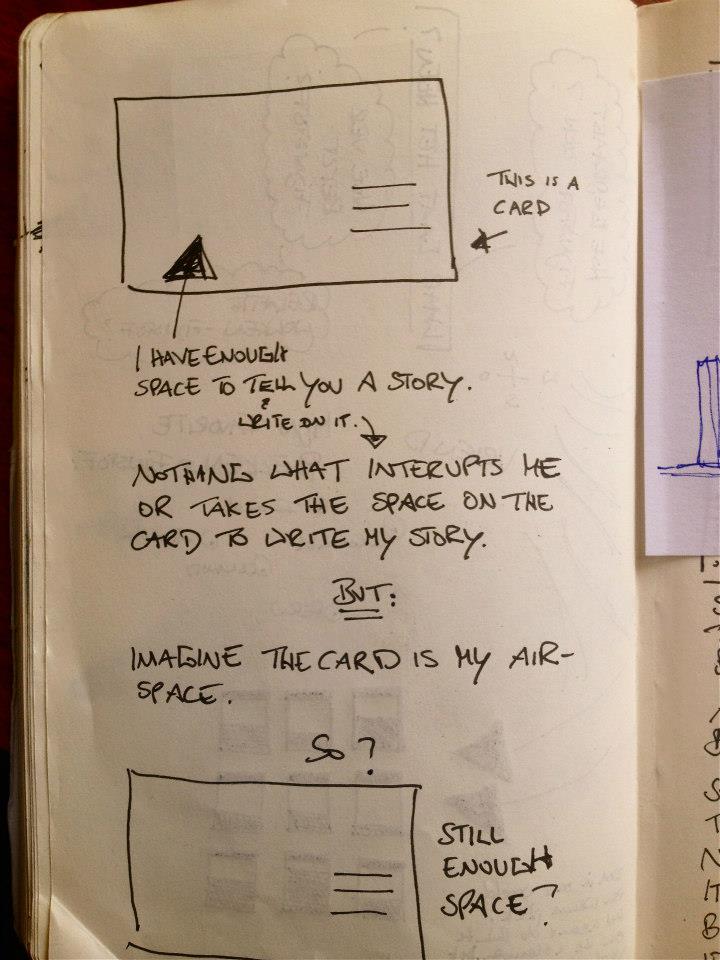 THIS IS A
CARD
I HAVE ENOUGH
SPACE TO TELL YOU A STORY.
& WRITE ON IT.
NOTHING WHAT INTERUPTS ME
OR TAKES THE SPACE ON THE
CARD TO WRITE MY STORY.
BUT:
IMAGINE THE CARD IS MY AIR-
SPACE.
SO?
STILL
ENOUGH
SPACE?